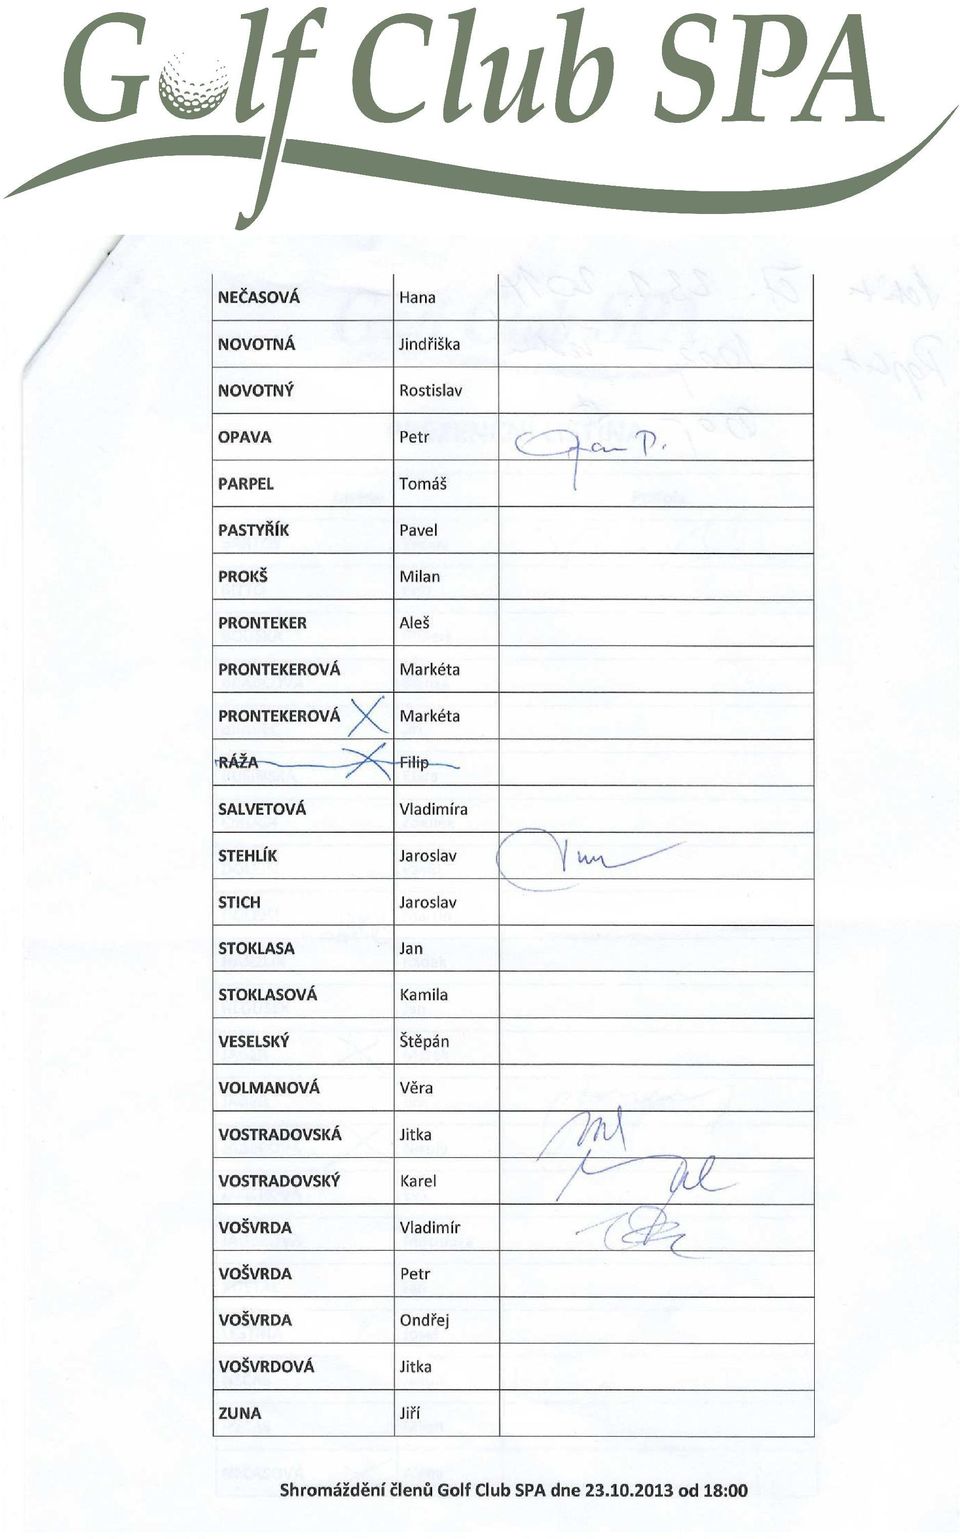 Golf Club SPA
NEČASOVÁ Hana
NOVOTNÁ Jindřiška
NOVOTNÝ Rostislav
OPAVA Petr
PARPEL Tomáš
PASTYŘÍK Pavel
PROKŠ Milan
PRONTEKER Aleš
PRONTEKEROVÁ Markéta
PRONTEKEROVÁ X Markéta
RÁŽA X Filip
SALVETOVÁ Vladimíra
STEHLÍK Jaroslav
STICH Jaroslav
STOKLASA Jan
STOKLASOVÁ Kamila
VESELSKÝ Štěpán
VOLMANOVÁ Věra
VOSTRADOVSKÁ Jitka
VOSTRADOVSKÝ Karel
VOŠVRDA Vladimír
VOŠVRDA Petr
VOŠVRDA Ondřej
VOŠVRDOVÁ Jitka
ZUNA Jiří
Shromáždění členů Golf Club SPA dne 23.10.2013 od 18:00